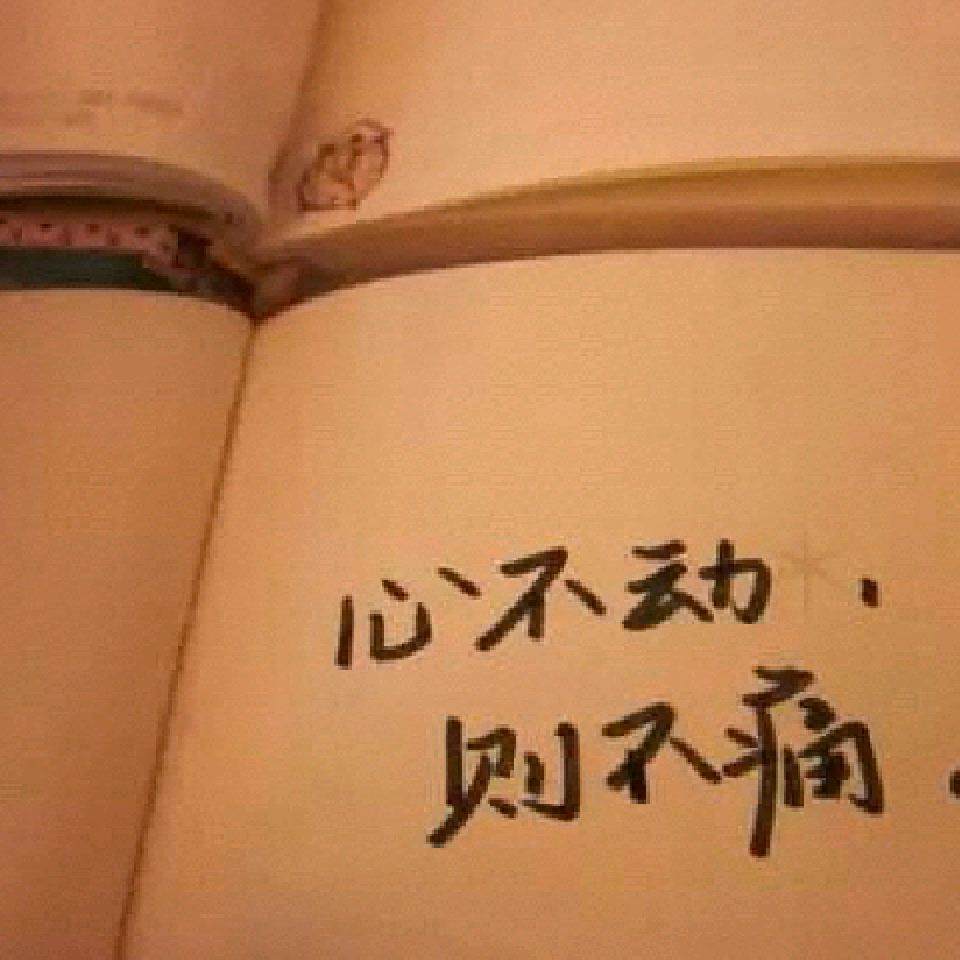 心不动.
则不痛.